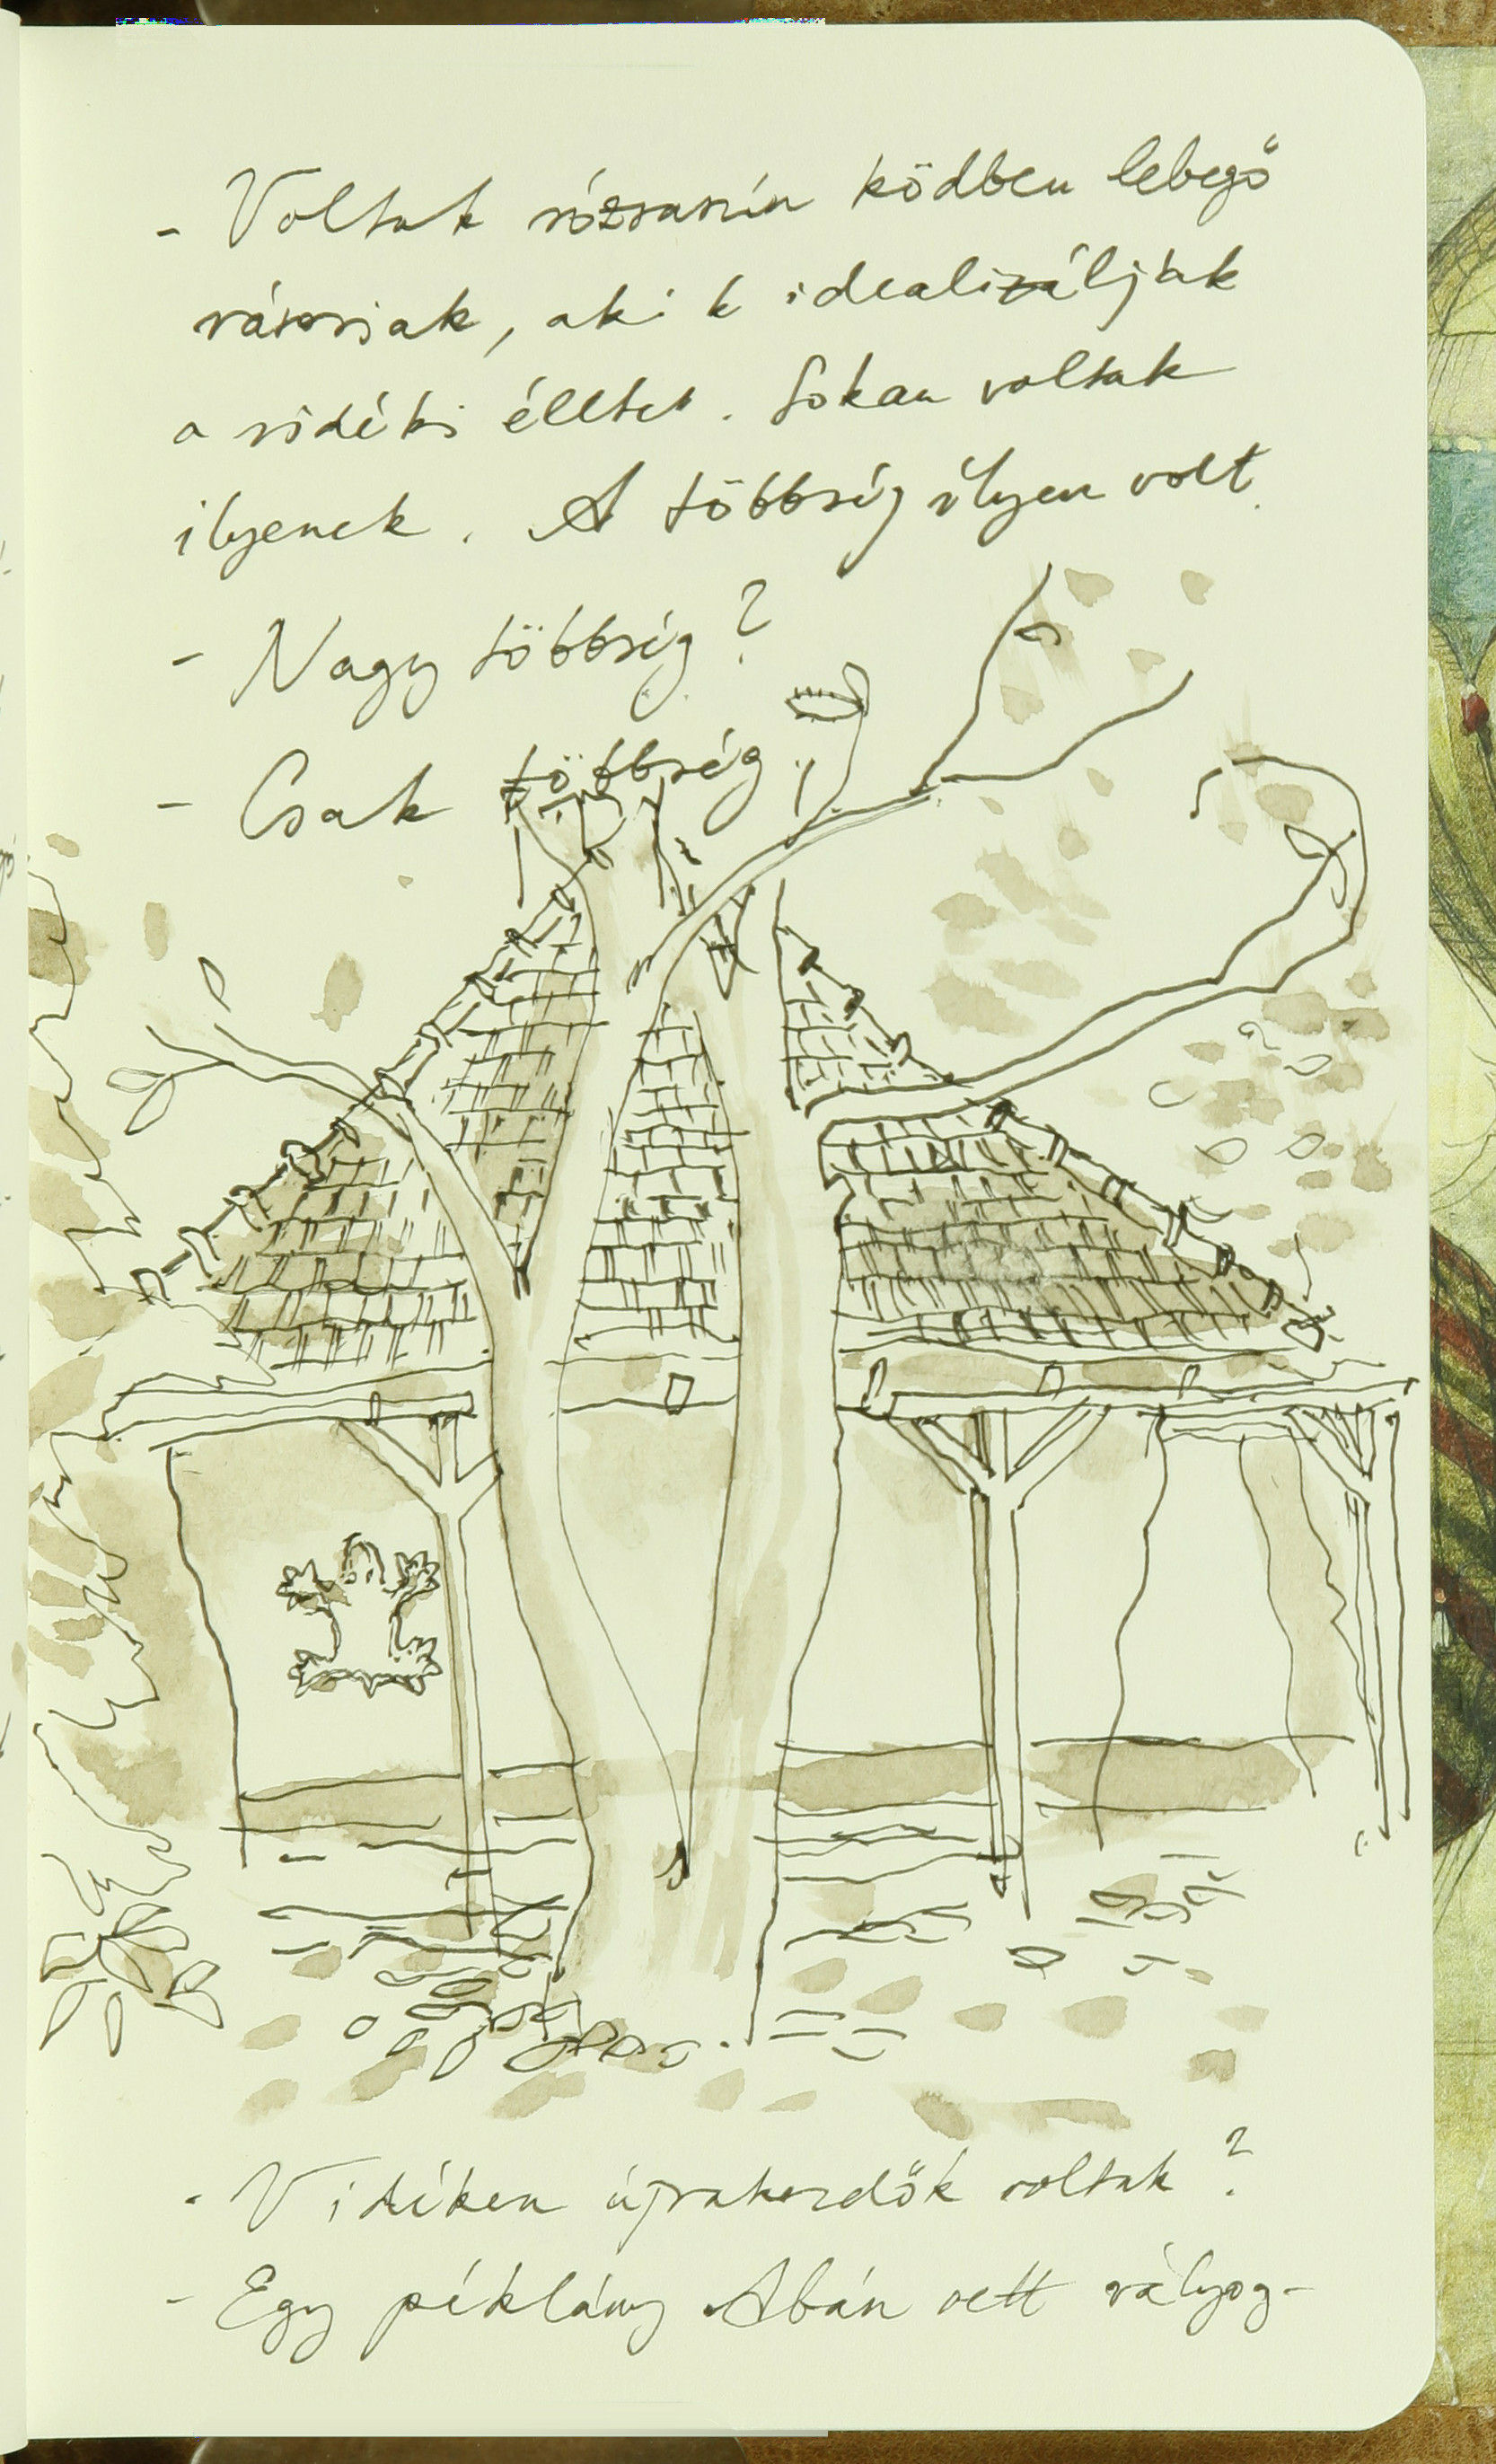 - Voltak rózsaszín ködben lebegő
városiak, akik idealizálják
a vidéki élltet. Sokan voltak
ilyenek. A többség ilyen volt.
- Nagy többség?
- Csak többség.
- Vidéken újrakezdők voltak?
- Egy péklány Abán vett vályog-